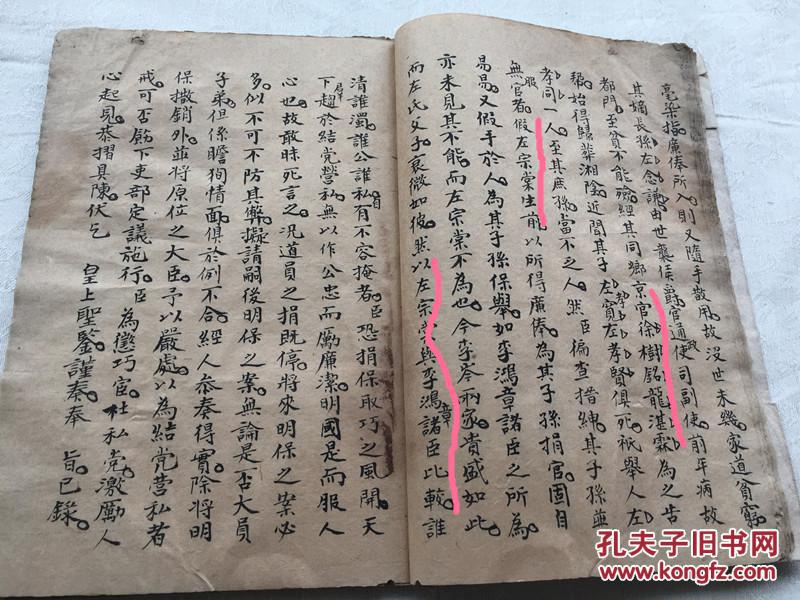 毫染指廉俸所入則又隨手散用故没世未幾家道貧窮
其嫡長孫左念謙由世襲侯爵官通政使司副使前年病故
都門至貧不能殮經其同鄉京官徐樹銘龍湛霖為之告
幫始得歸葬湘陰近聞其子左孝寬左孝賢俱死祇舉人左
孝同一人至其庶孫當不乏人然臣徧查搢紳其子孫並
無服官者假左宗棠生前以所得廉俸為其子孫捐官固自
易易又假手於人為其子孫保舉如李鴻章諸臣之所為
亦未見其不能而左宗棠不為也今李岑兩家貴盛如此
而左氏父子衰微如彼然以左宗棠與李鴻章諸臣比較誰
清誰濁誰公誰私自有不容掩者臣恐捐保取巧之風開天
下羣趨於結党營私無以作公忠而厲廉潔明國是而服人
心也故敢昧死言之況道員之捐既停將來明保之案必
多似不可不防其弊擬請嗣後明保之案無論是否大員
子弟但係瞻徇情面俱於例不合經人叅奏得實除將明
保撤銷外並將原位之大臣予以嚴處以為結党营私者
戒可否飭下吏部定議施行臣為懲巧宦杜私党激勵人
心起見恭摺具陳伏乞皇上聖鑒謹奏奉旨已錄
孔夫子旧书网
www.kongfz.com